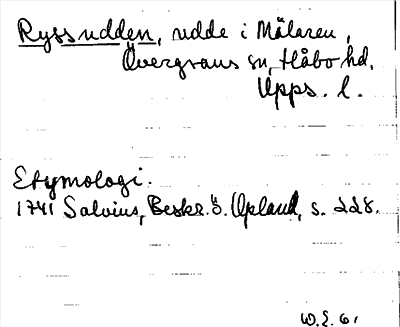 Ryssudden, udde i Mälaren,
Övergrans sn, Håbo hd.
Upps. l.
Etymologi.
1741 Salvius, Beskr. ö. Upland, s. 228.
W.E. 61